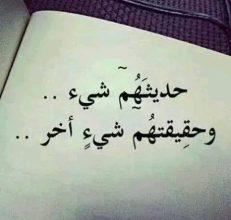 حديثهُم شيء ..
وحقِيقتهُم شيءٍ أخر ..